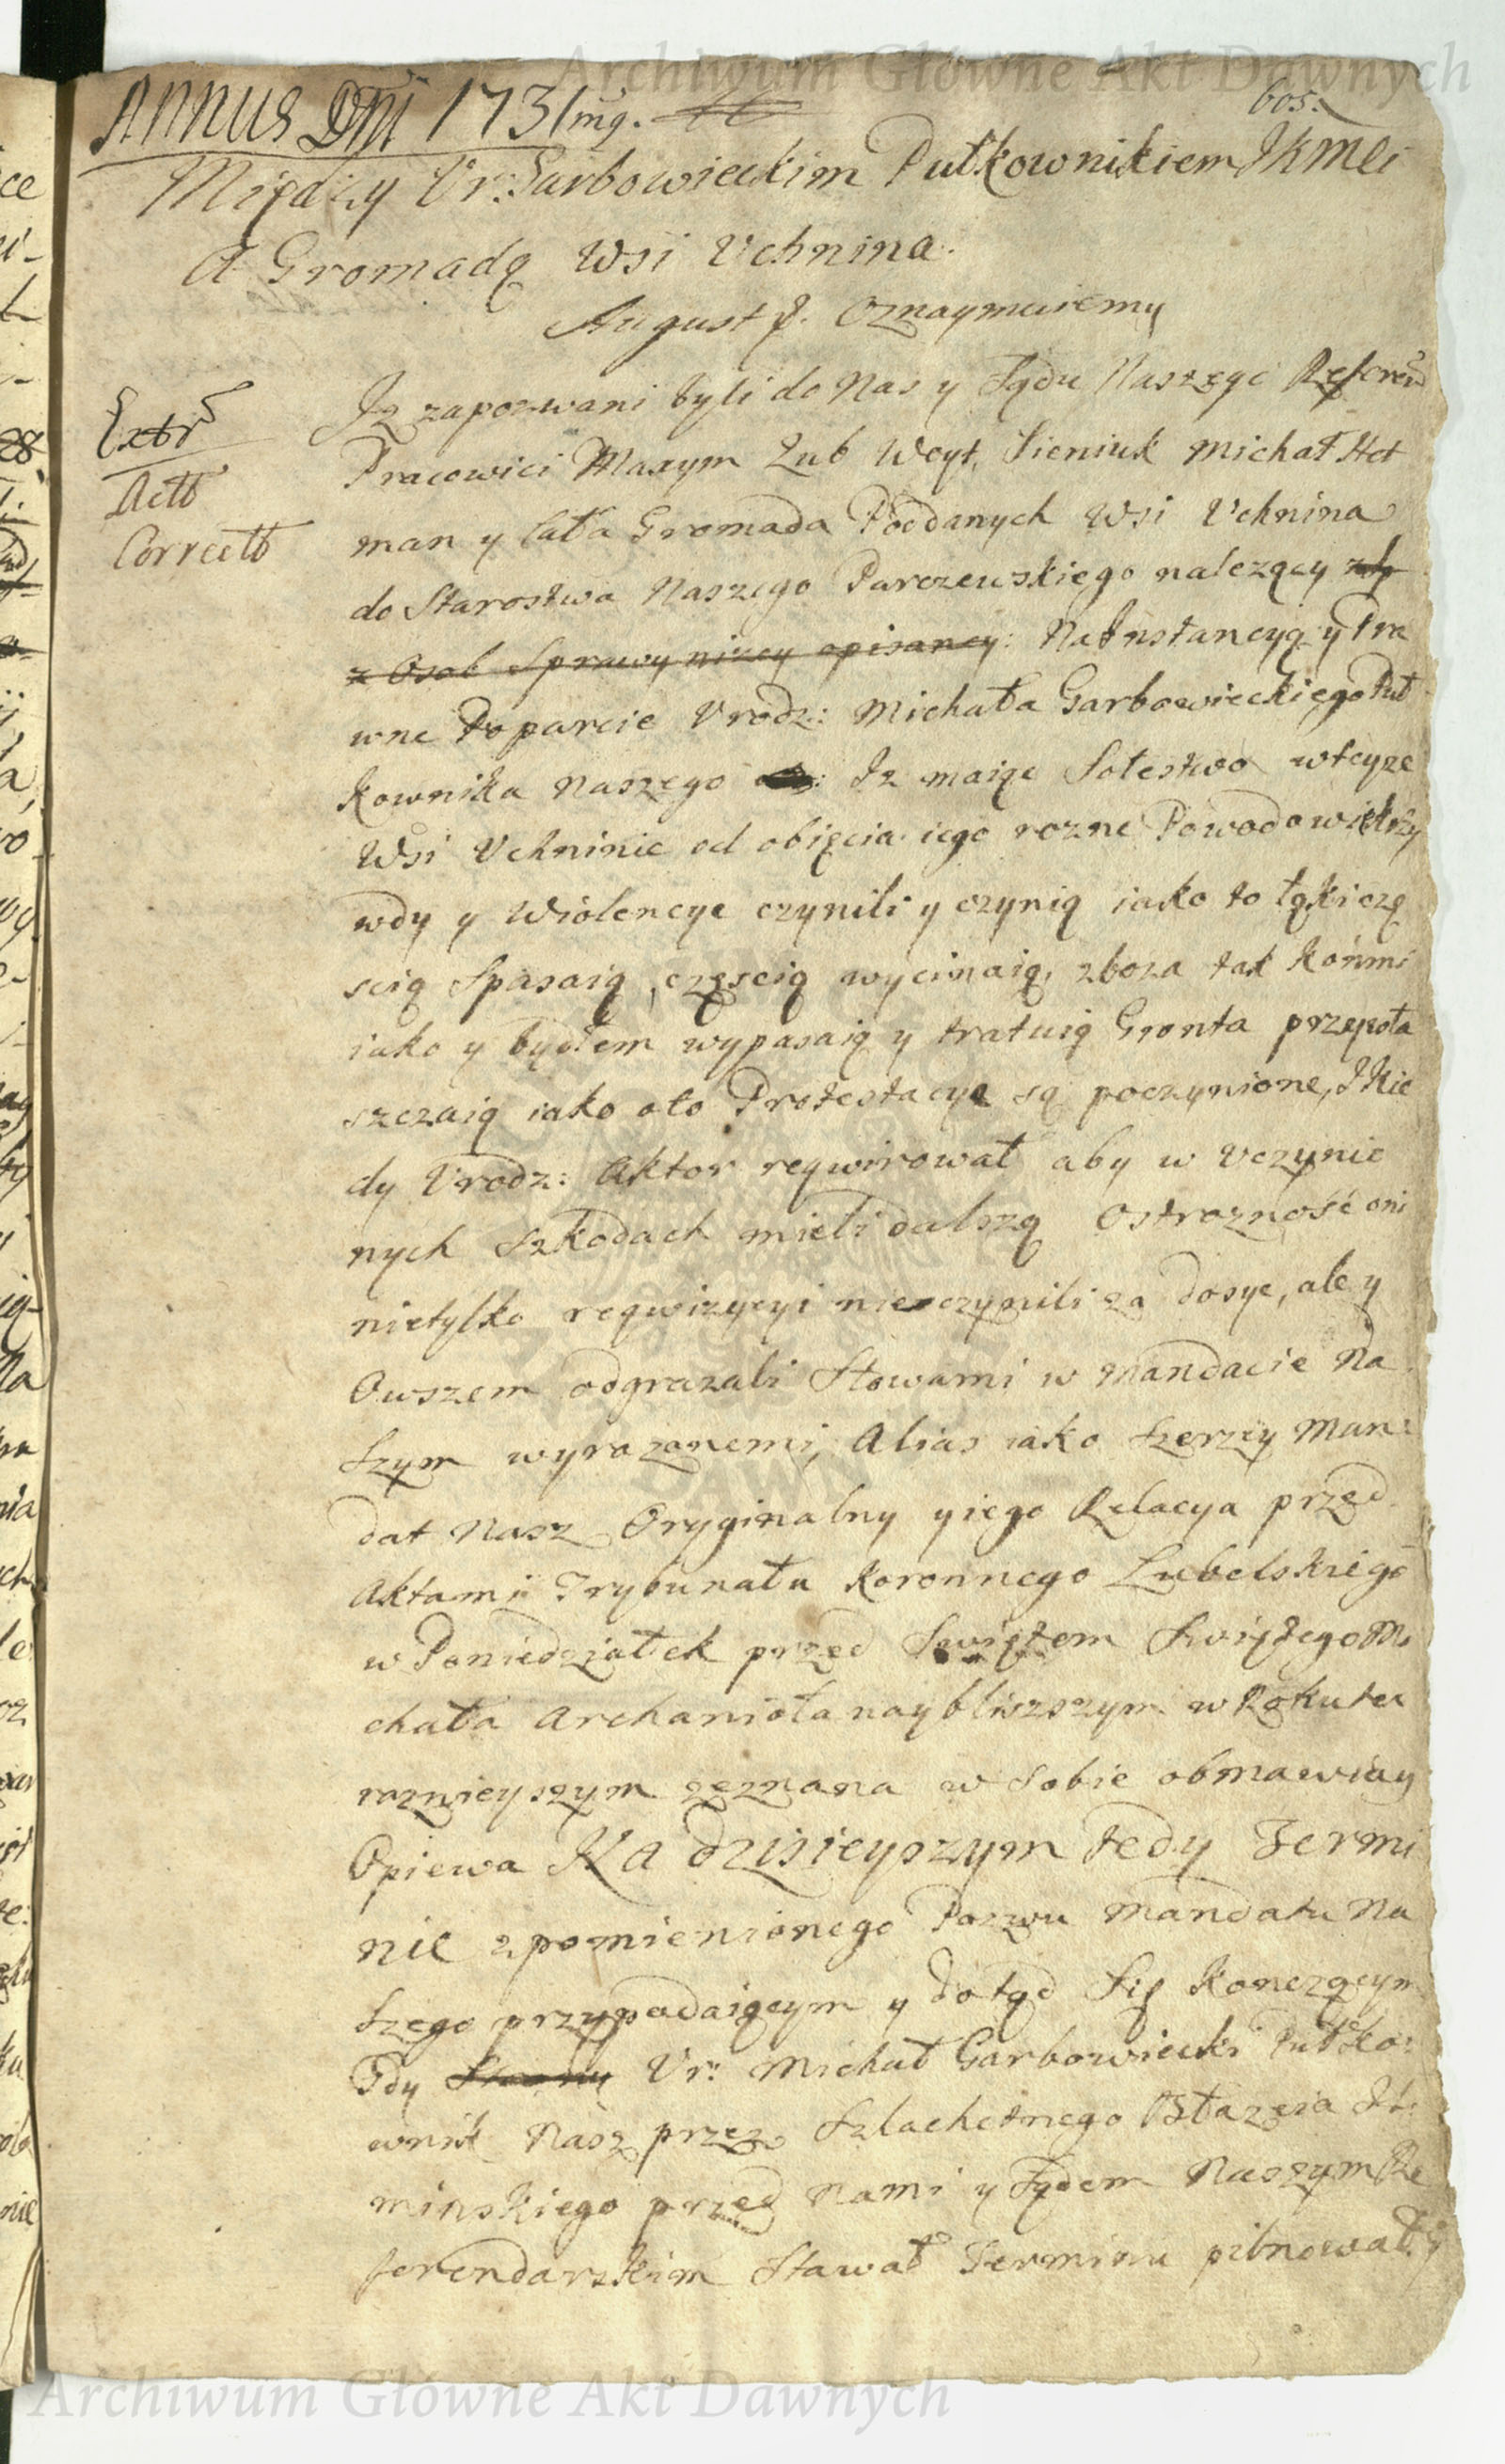 Archiwum Główne Akt Dawnych
605.
Annus Dni 1731mg.
Między Ur: Garbowieckim Pułkownikiem JKMci
A Gromadą Wsi Uchnina.
August 2. Oznaymuiemy
Iż zapozwani byli do Nas y Sądu Naszego Referen
Extr
Actt
Correctt
Pracowici Maxym Zub Woyt, Sieniuk Michał Het
man y Cała Gromada Poddanych Wsi Uchnina
do Starostwa Naszego Parczewskiego nalezący
z Osob Sprawy nizey opisaney: Na Instancyą y Pra
wne Poparcie Urodz: Michała Garbowieckiego Puł
kownika Naszego Iz maiąc Sołestwo wteyze
Wsi Uchninie od obięcia iego rozne Powodowi krzy
wdy y Wiolencye czynili y czynią iako to łąki czę
scią Spasaią, częscią wycinaią, zboza tak końmi
iako y bydłem wypasaią y tratuią Gronta przepoła
szczaią iako oto Protestacye są poczynione, I kie
dy Urodz: Aktor reqwirował aby w Uczynio
nych Szkodach mieli dalszą Ostrozność oni
nietylko reqwizycyi nie czynili za dosyc, ale y
Owszem odgrazali Słowami w Mandacie Na
Szym wyrazonemi, Alias iako Szerzey Man:
dat Nasz Oryginalny y iego Relacya przed
Aktami Trybunału Koronnego Lubelskiego
w Poniedziałek przed Swiętem Swiętego Mi
chała Archanioła naybliszszym w Roku te
raznieyszym zeznana w Sobie obmawiay
Opiewa Na dzisieyszym tedy Termi
nie zpomienionego Pozwu Mandatu Na
Szego przypadaiącym y dotąd Się Konczącym
Gdy Ur: Michał Garbowiecki Pułko:
wnik Nasz przez Szlachetnego Błazeia
minskiego przed Nami y Sądem Naszym Re
ferendarskim Stawał Terminu pilnował y
Archiwum Główne Akt Dawnych